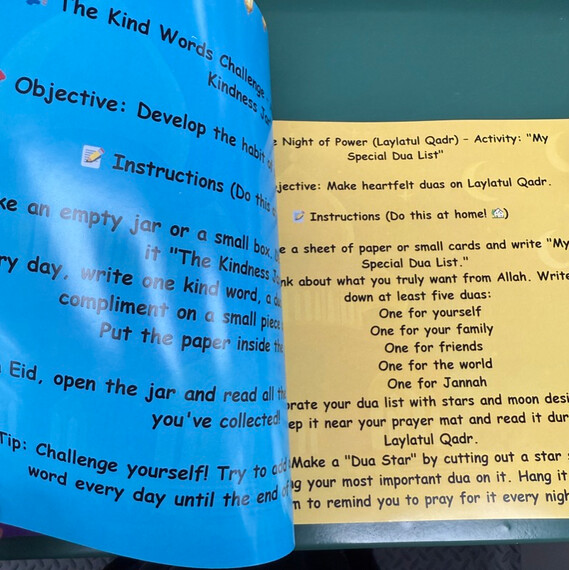 The Kind Words Challenge
Kindness Jar
Objective: Develop the habit of
Instructions (Do this
an empty jar or a small box,
it "The Kindness
day, write one kind word, a
compliment on a small piece
Put the paper inside the
Eid, open the jar and read all
you've collected!
Tip: Challenge yourself! Try to add
word every day until the end of
Night of Power (Laylatul Qadr) - Activity: "My
Special Dua List"
Make heartfelt duas on Laylatul Qadr.
Instructions (Do this at home! )
a sheet of paper or small cards and write "My
Special Dua List."
about what you truly want from Allah. Write
down at least five duas:
One for yourself
One for your family
One for friends
One for the world
One for Jannah
your dua list with stars and moon
it near your prayer mat and read it
Laylatul Qadr.
Make a "Dua Star" by cutting out a star
your most important dua on it. Hang it
to remind you to pray for it every